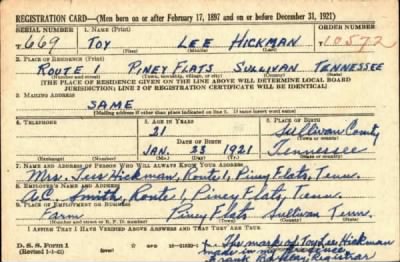 REGISTRATION CARD—(Men born on or after February 17, 1897 and on or before December 31, 1921)
SERIAL NUMBER 1. NAME (Print) ORDER NUMBER
T 669 TOY LEE HICKMAN T10572
(First) (Middle) (Last)
2. PLACE OF RESIDENCE (Print)
ROUTE 1 PINEY FLATS SULLIVAN TENNESSEE
(Number and street) (Town, township, village, or city) (County) (State)
[THE PLACE OF RESIDENCE GIVEN ON THE LINE ABOVE WILL DETERMINE LOCAL BOARD
JURISDICTION; LINE 2 OF REGISTRATION CERTIFICATE WILL BE IDENTICAL]
3. MAILING ADDRESS
SAME
[Mailing address if other than place indicated on line 2. If same insert word same]
4. TELEPHONE 5. AGE IN YEARS 6. PLACE OF BIRTH
21 Sullivan County
DATE OF BIRTH (Town or county)
JAN. 23 1921 Tennessee
(Exchange) (Number) (Mo.) (Day) (Yr.) (State or country)
7. NAME AND ADDRESS OF PERSON WHO WILL ALWAYS KNOW YOUR ADDRESS
Mrs. Hickman, Route 1, Piney Flats, Tenn.
8. EMPLOYER'S NAME AND ADDRESS
A.C. Smith, Route 1, Piney Flats, Tenn.
9. PLACE OF EMPLOYMENT OR BUSINESS
Farm Piney Flats Sullivan Tenn.
(Number and street or R. F. D. number) (Town) (County) (State)
I AFFIRM THAT I HAVE VERIFIED ABOVE ANSWERS AND THAT THEY ARE TRUE.
D. S. S. Form 1 The mark of Toy Lee Hickman
(Revised 1-1-42) (over) made in my presence
Registrar